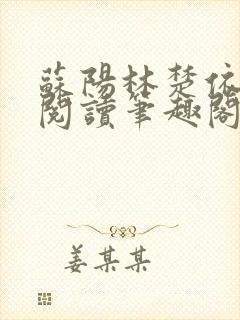 蘇陽林楚依
閱讀筆趣閣
姜某某